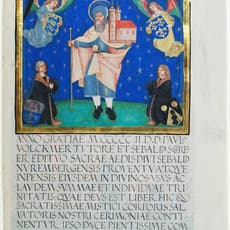 ANNO GRATIAE M CCCCC II. D. D. PAVL
VOLCKMER TVTORE ET SEBALD SSBR
ER EDITVO SACRAE AEDIS DIVI SEBALD
NVREMBERGENSIS PROVENTVQVE
IMPENSIS EIVSDEM IN DIVINOS VSVS AC
LAVDEM SVMMAE ET INDIVIDVAE TRI
NITATIS QVAE DEVS EST LIBER HIC QVO
SACRATISSIMAE MISTICI CORPORIS SAL
VATORIS NOSTRI CERIMONIAE CONTI
NENTVR IPSO DVCE PIENTISSIME COM